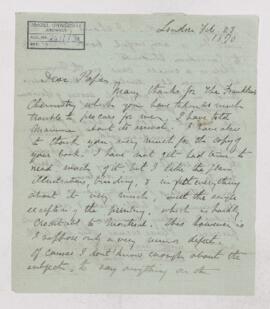 London Feb. 27
1870
McGILL UNIVERSITY
ARCHIVES
ACC. NO.
REF.
Dear Papa,
Many thanks for the Frankland's
Chemistry which you have taken so much
trouble to procure for me. I have told
Mamma about its arrival. I can also
to thank you very much for the copy of
your book. I have not yet had time to
read much of it but I like the plan
illustrations, binding, & in fact everything
about it very much, with the single
exception of the printing, which is hardly
creditable to Montreal. This however is
I suppose only a very minor defect.
Of course I don't know enough about the
subject, to say anything on the